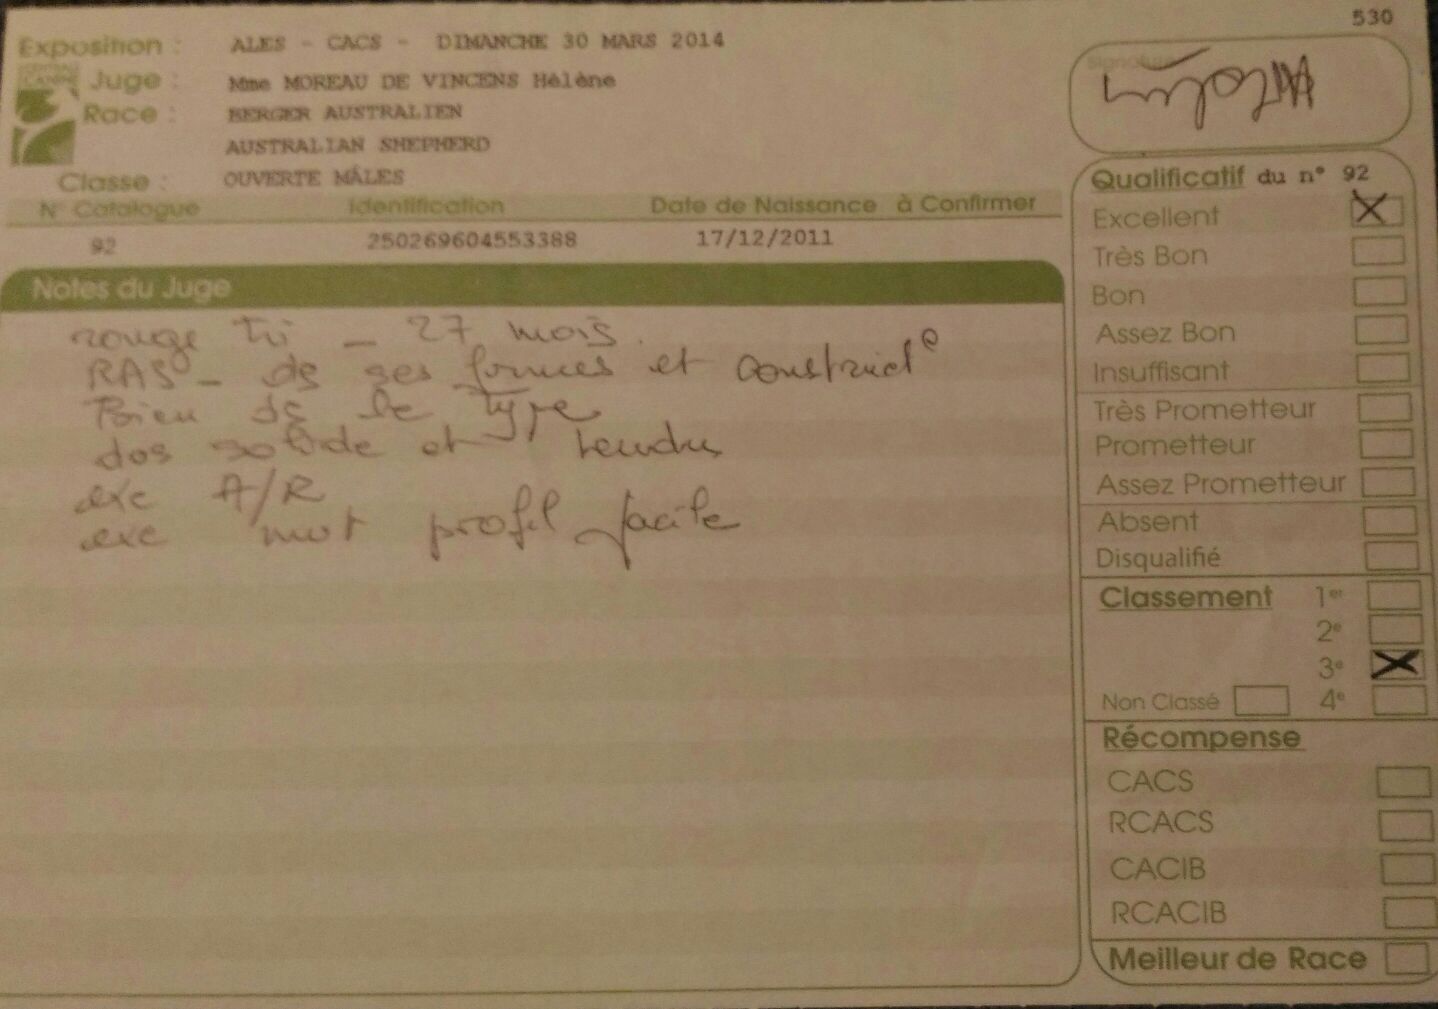 530
Exposition : ALES - CACS - DIMANCHE 30 MARS 2014
Juge : Mme MOREAU DE VINCENS Hélène
Race : BERGER AUSTRALIEN
AUSTRALIAN SHEPHERD
Classe : OUVERTE MÂLES
N° Catalogue Identification Date de Naissance à Confirmer
92 250269604553388 17/12/2011
Notes du Juge
rouge tri - 27 mois.
RAS - de ses formes et construct°
Bien ds le type
dos solide et tendu
exc A/R
exc mvt profil facile
Signature
Qualificatif du n° 92
Excellent X
Très Bon
Bon
Assez Bon
Insuffisant
Très Prometteur
Prometteur
Assez Prometteur
Absent
Disqualifié
Classement 1er
2e
3e X
Non Classé 4e
Récompense
CACS
RCACS
CACIB
RCACIB
Meilleur de Race